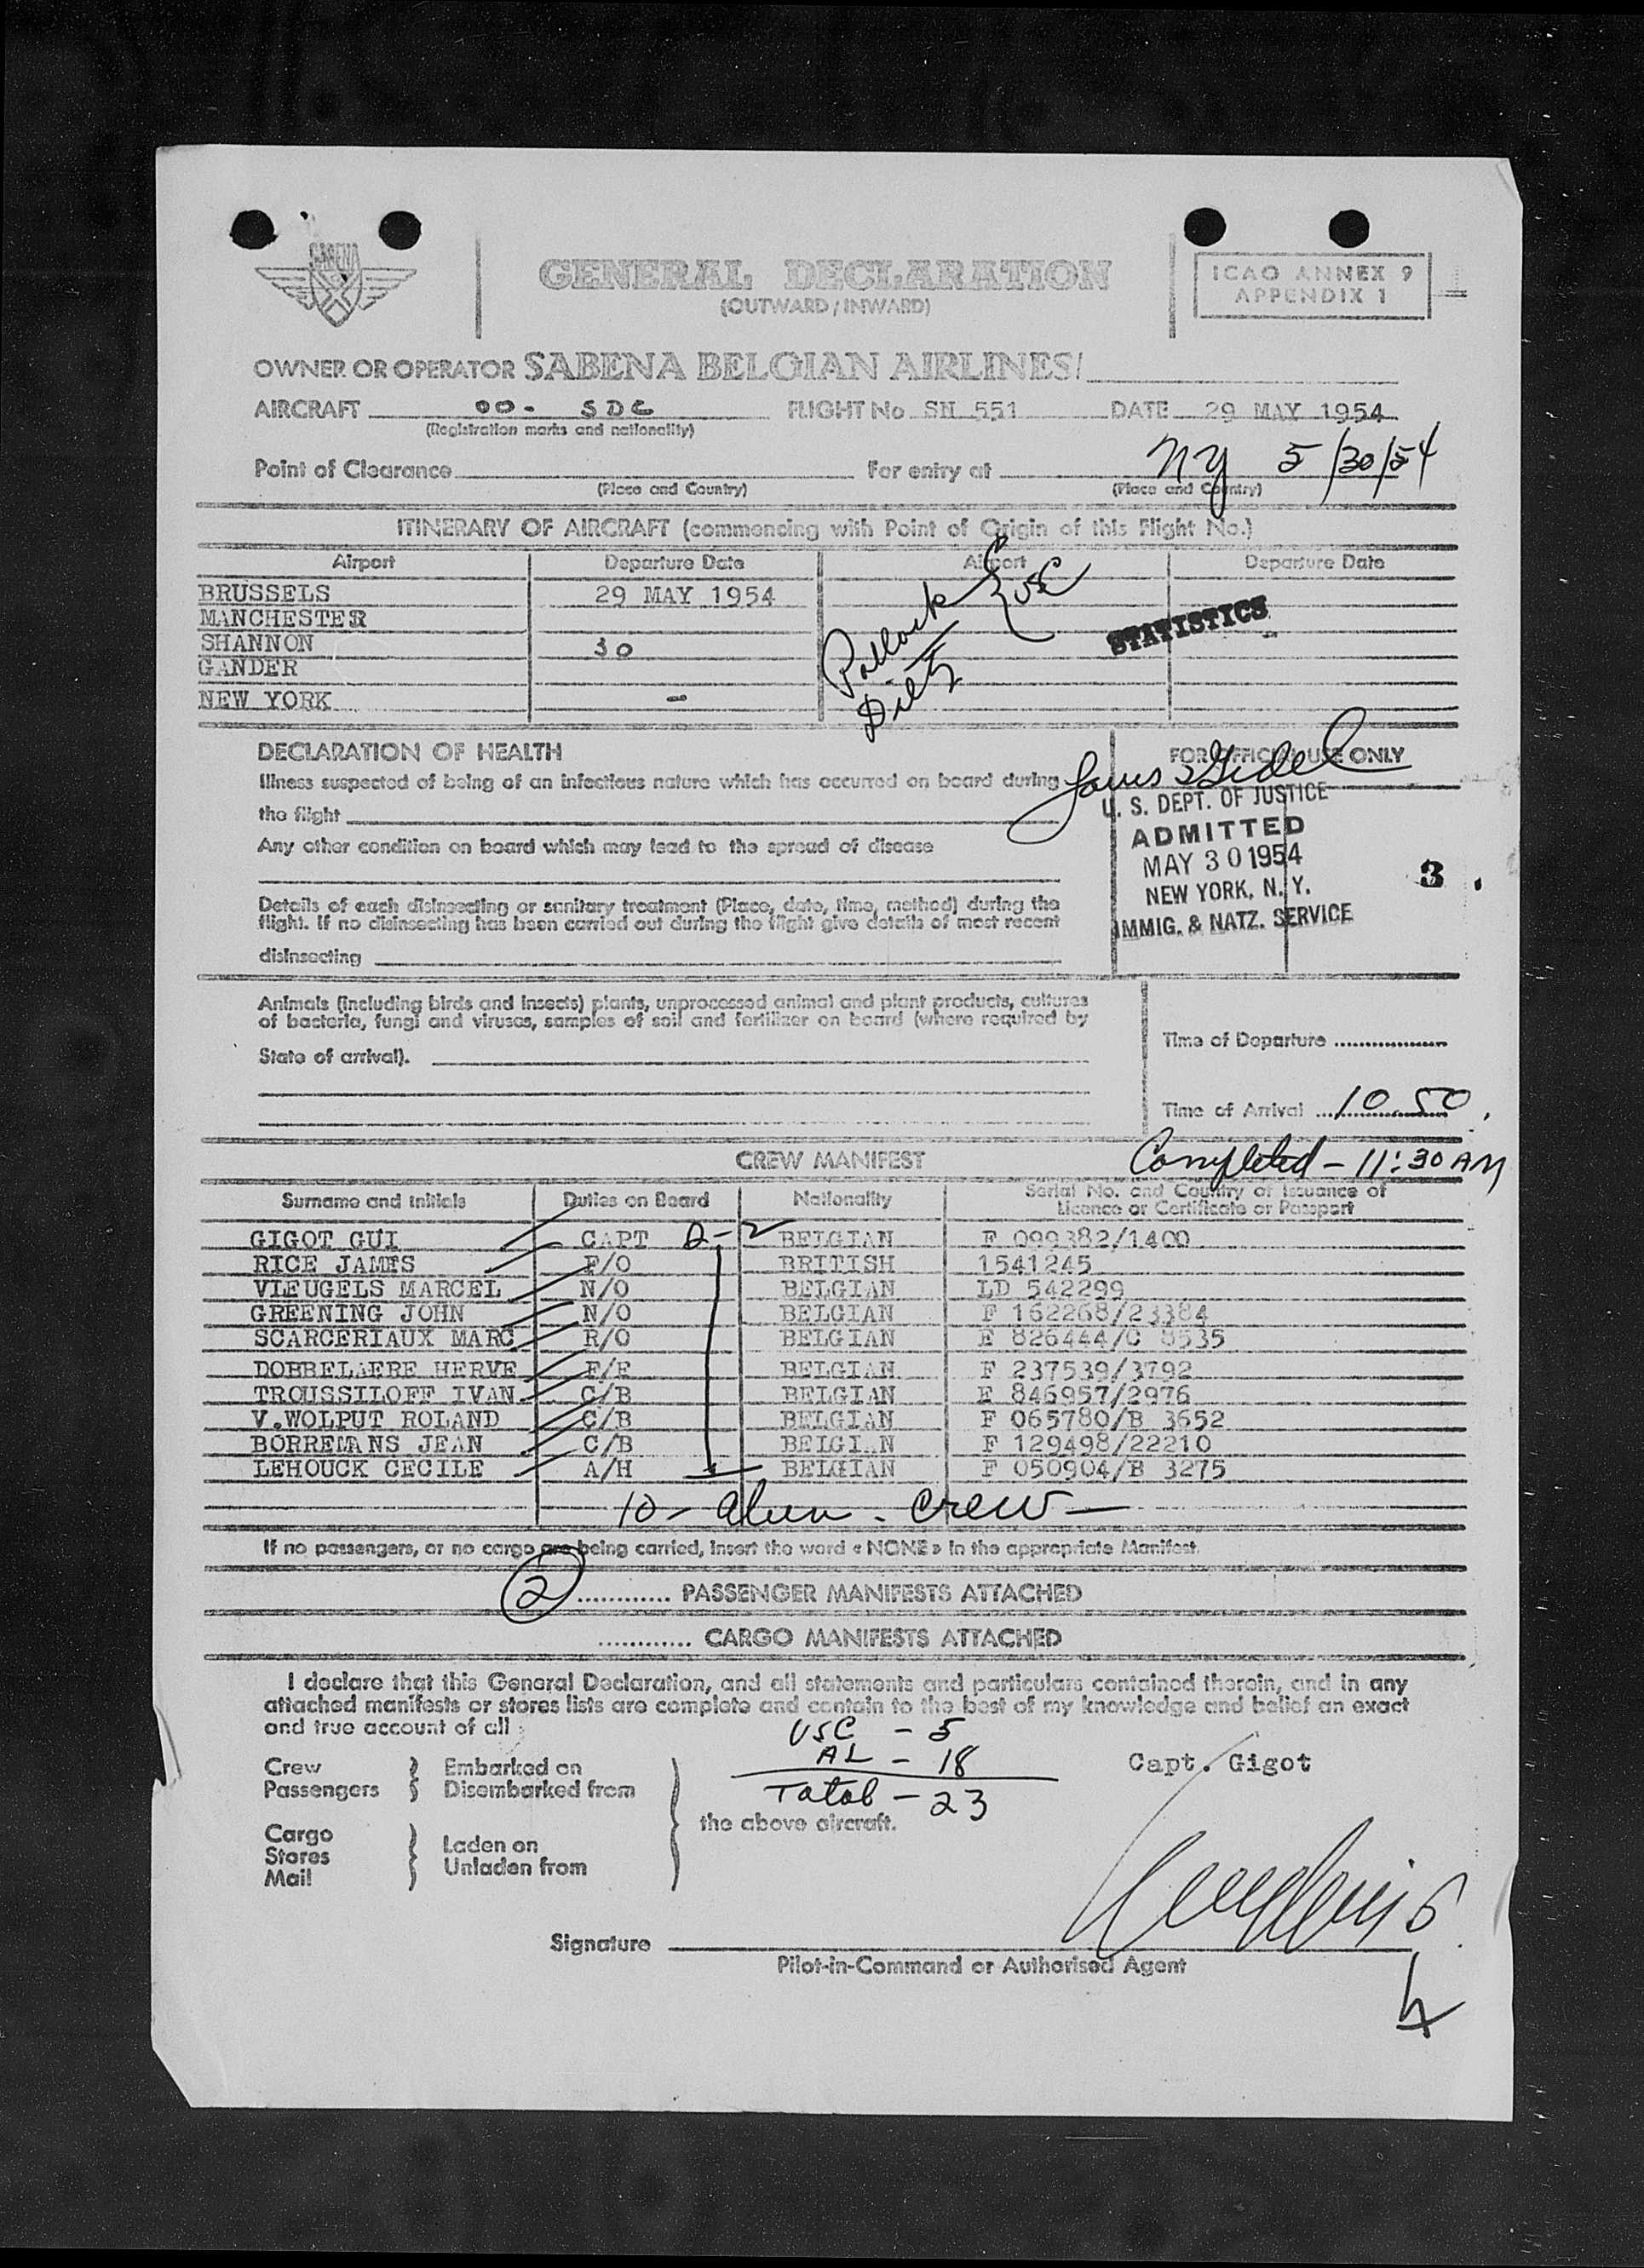 SABENA
GENERAL DECLARATION
(OUTWARD/INWARD)
ICAO ANNEX 9
APPENDIX 1
OWNER OR OPERATOR SABENA BELGIAN AIRLINES
AIRCRAFT OO- SDC FLIGHT No SN 551 DATE 29 MAY 1954
(Registration marks and nationality)
Point of Clearance For entry at NY 5/30/54
(Place and Country) (Place and Country)
ITINERARY OF AIRCRAFT (commencing with Point of Origin of this Flight No.)
Airport Departure Date Airport Departure Date
BRUSSELS 29 MAY 1954
MANCHESTER
SHANNON 30
GANDER
NEW YORK -
Pollack USC
STATISTICS
DECLARATION OF HEALTH
FOR OFFICIAL USE ONLY
Illness suspected of being of an infectious nature which has occurred on board during
the flight
Any other condition on board which may lead to the spread of disease
U. S. DEPT. OF JUSTICE
ADMITTED
MAY 30 1954
NEW YORK, N. Y.
IMMIG. & NATZ. SERVICE
3
Details of each disinsecting or sanitary treatment (Place, date, time, method) during the
flight. If no disinsecting has been carried out during the flight give details of most recent
disinsecting
Animals (including birds and insects) plants, unprocessed animal and plant products, cultures
of bacteria, fungi and viruses, samples of soil and fertilizer on board (where required by
State of arrival).
Time of Departure
Time of Arrival 10 50
Completed - 11:30 AM
CREW MANIFEST
Surname and Initials Duties on Board Nationality Serial No. and Country of Issuance of
Licence or Certificate or Passport
GIGOT GUI CAPT D-2 BELGIAN F 099382/1400
RICE JAMES F/O BRITISH 1541245
VLEUGELS MARCEL N/O BELGIAN LD 542299
GREENING JOHN N/O BELGIAN F 162268/23384
SCARCERIAUX MARC R/O BELGIAN E 826444/C 8535
DOBBELAERE HERVE F/E BELGIAN F 237539/3792
TROUSSILOFF IVAN C/B BELGIAN E 846957/2976
V.WOLPUT ROLAND C/B BELGIAN F 065780/B 3652
BORREMANS JEAN C/B BELGIAN F 129498/22210
LEHOUCK CECILE A/H BELGIAN F 050904/B 3275
10 - alien - crew -
If no passengers, or no cargo are being carried, insert the word « NONE » in the appropriate Manifest.
2 PASSENGER MANIFESTS ATTACHED
CARGO MANIFESTS ATTACHED
I declare that this General Declaration, and all statements and particulars contained therein, and in any
attached manifests or stores lists are complete and contain to the best of my knowledge and belief an exact
and true account of all :
USC - 5
AL - 18
Total - 23
Crew
Passengers
Embarked on
Disembarked from
Capt. Gigot
the above aircraft.
Cargo
Stores
Mail
Laden on
Unladen from
Signature
Pilot-in-Command or Authorised Agent